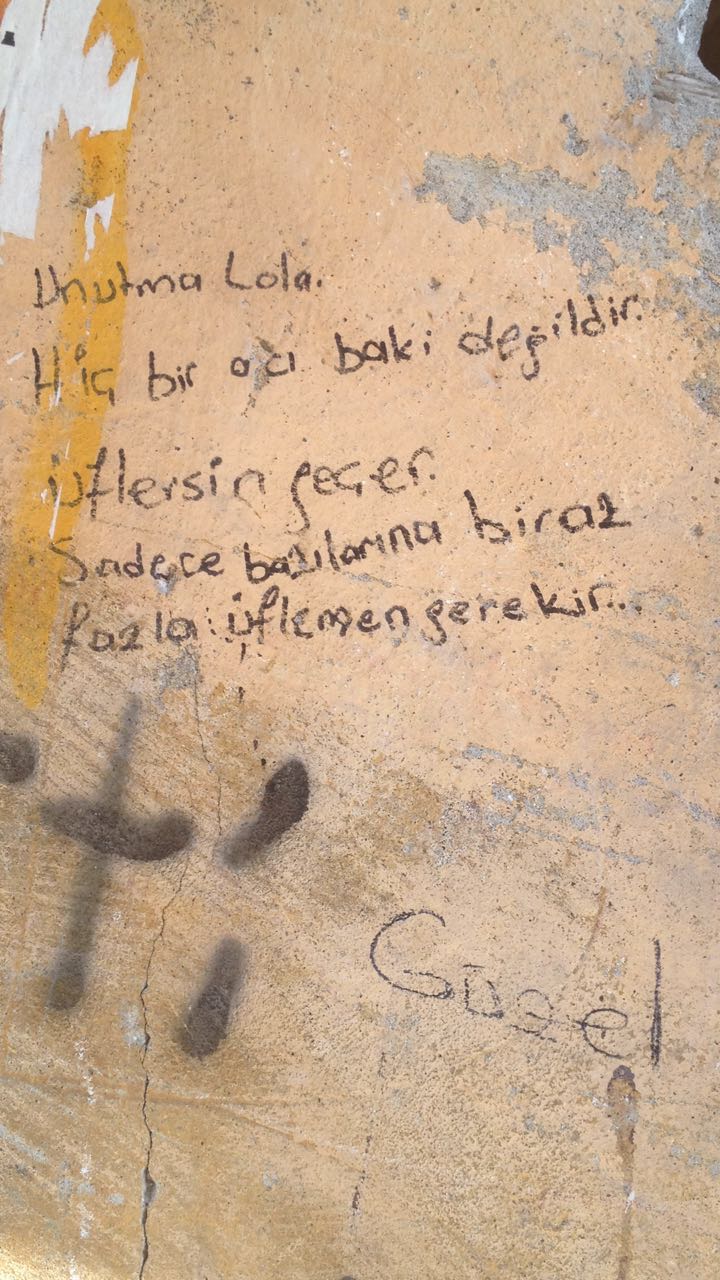 Unutma Lola.
Hiç bir acı baki değildir.
Üflersin geçer.
Sadece bazılarına biraz
fazla üflemen gerekir...
Güzel